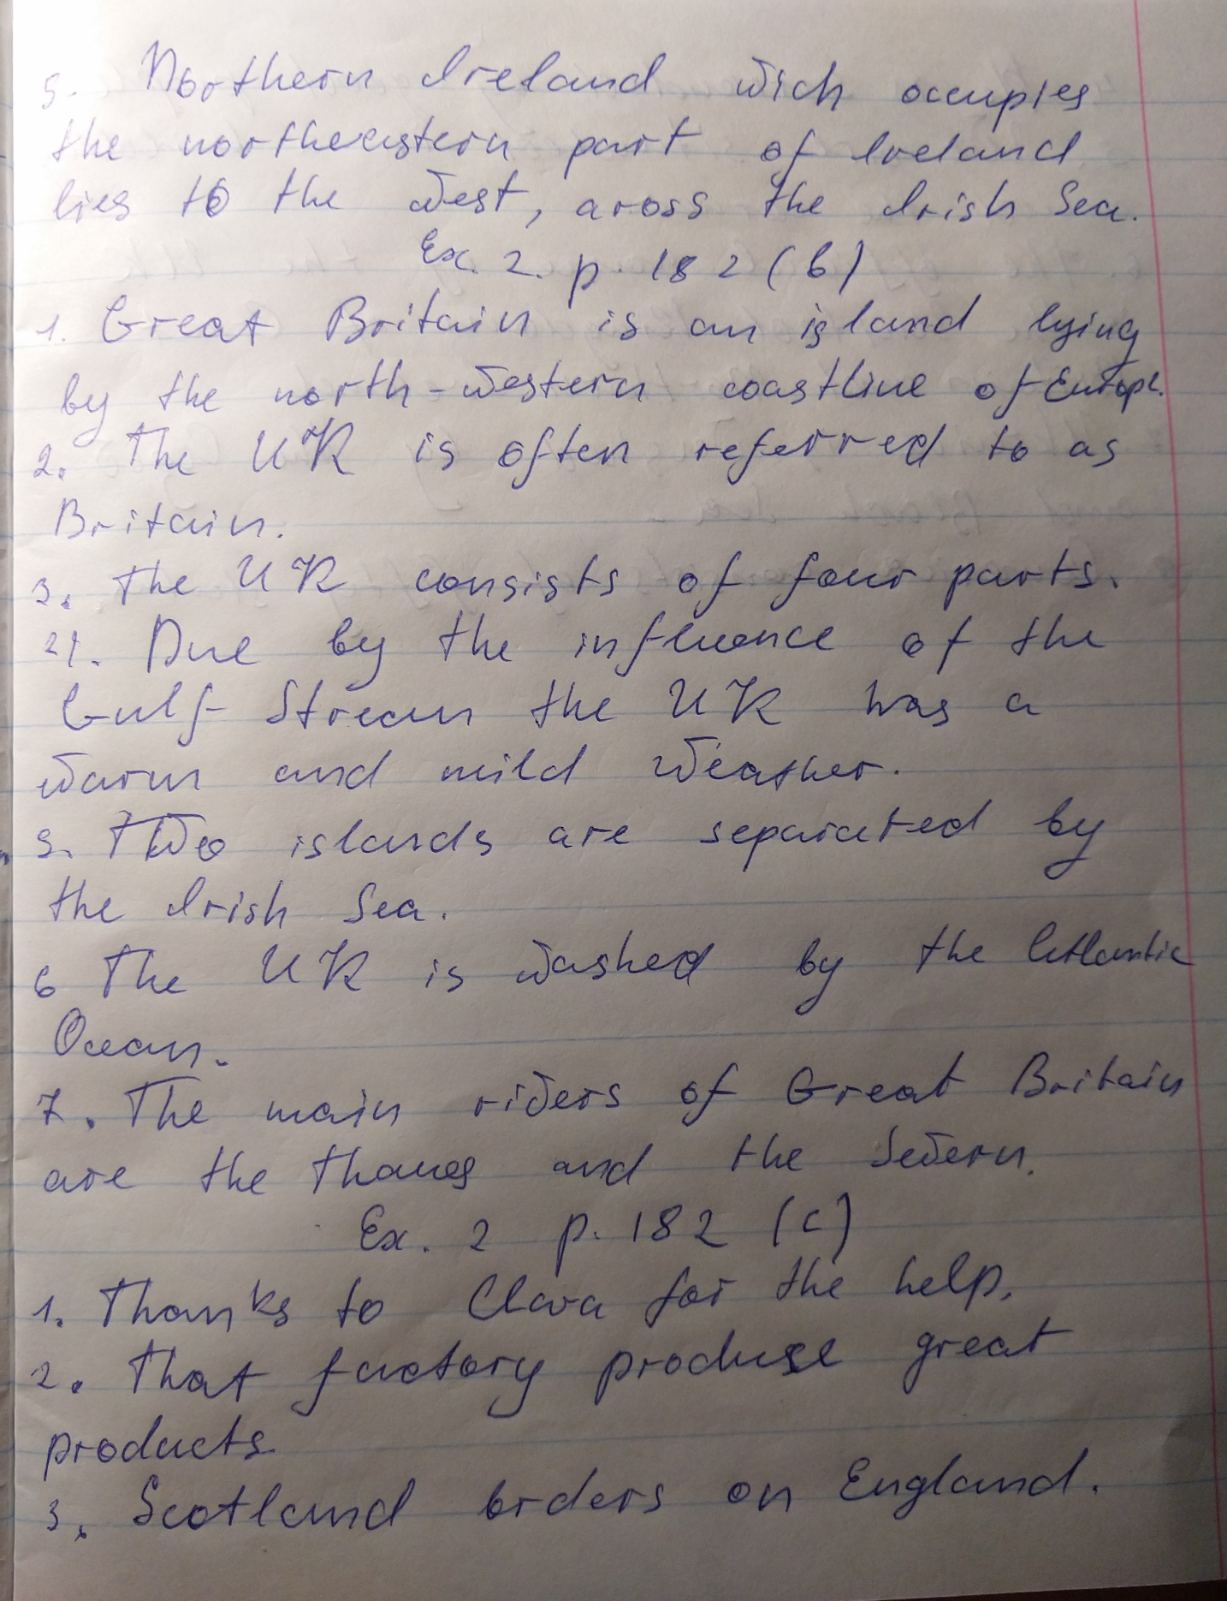 5. Northern Ireland wich occupies
the northeastern part of Ireland
lies to the west, aross the Irish Sea.
Ex. 2. p. 182 (b)
1. Great Britain is an island lying
by the north-western coastline of Europe.
2. The UK is often referred to as
Britain.
3. The UK consists of four parts.
4. Due by the influence of the
Gulf Stream the UK has a
warm and mild weather.
5. Two islands are separated by
the Irish Sea.
6 The UK is washed by the Atlantic
Ocean.
7. The main rivers of Great Britain
are the Thames and the Severn.
Ex. 2 p. 182 (c)
1. Thanks to Clara for the help.
2. That factory produse great
products.
3. Scotland brders on England.